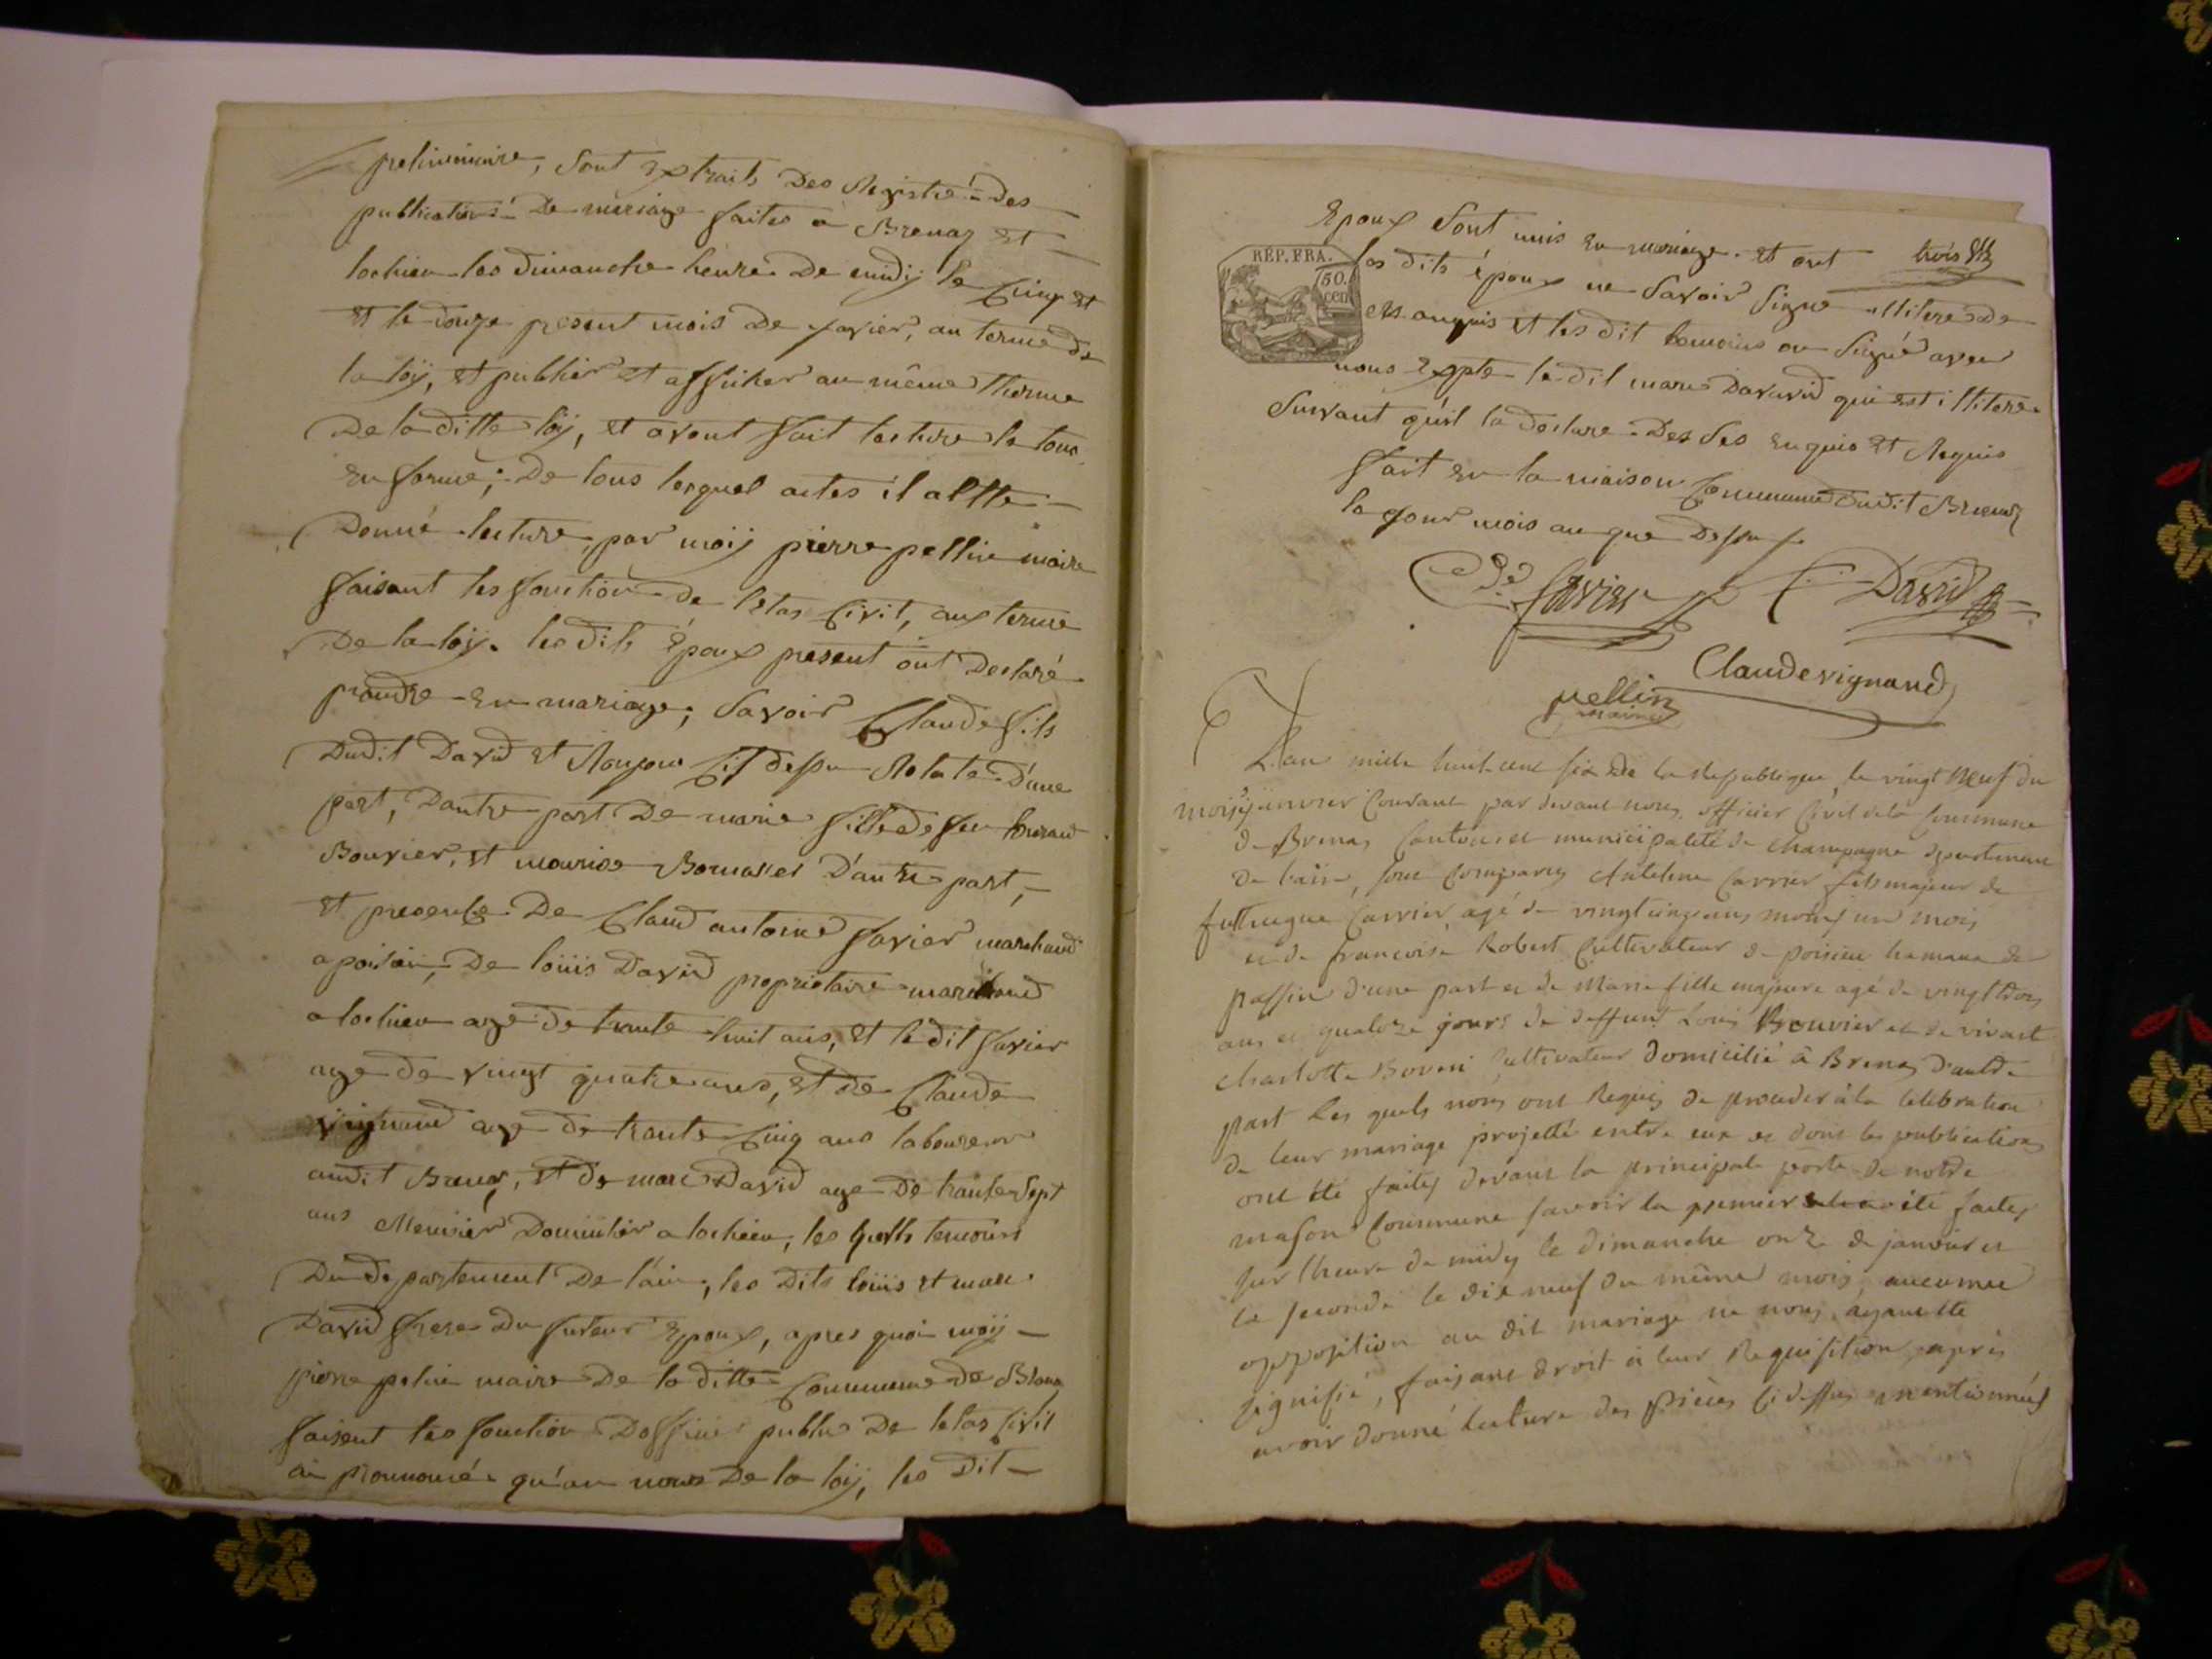 preliminaire, sont Extraits Des Registre Des
publications De mariage faites a Brenaz Et
lochieu les dimanche heure De midy le Cinq et
et le douze present mois De janvier, au terme de
la loij, Et publier Et afficher au même therme
De la ditte loij, et avont fait lecture le tous
En forme; De tous lesquel actes il a Ette
Donné lecture, par moij pierre pellin maire
faisant les fonction de letas Civil, aux terme
De la loij. les dits Epoux present ont Declaré
prandre En mariage; Savoir Claude fils
Dudit David Et Cit dessu D'une
part, Dautre part De marie fille de feu
Bouvier, et D'autre part,
Et presence De Claud antoine favier marchand
a De loüis David proprietaire marchand
a lochieu age de trante huit ans, Et le dit favier
age De vingt quatre ans, Et De Claude
vignand age De trante Cinq ans laboureur
audit Brenaz, Et De marc David age De trante Sept
ans Meusier Domicilier a lochieu, les quells temoins
Du departement De l'ain, les Dits loüis et marc
David frere Du futeur Epoux, apres quoi moij
pierre pelin maire De la ditte Commune De Brena
faisent les fonction Dofficie public De letas Civil
ai prononcé qu'au nom De la loij, les Dit
Epoux Sont unis En mariage. Et ont trois
RÉP. FRA.
50. cen
les dits époux ne Savoir Signe illitere De
Enquis Et les dit temoins on Signé avec
nous Expte le dit marc Davavid qui est illitere
Suivant qu'il la Declare Des Ses Enquis Et Requis
fait En la maison Commune dudit Brenaz
le jour mois an que Dessus
favier David
Claude vignand
pellin
maire
L'an mille huit cent six de la Republique, le vingt neuf du
mois janvier Courant par devant nous, officier Civil de la Commune
de Brenas Canton et municipalité de Champagne departement
de l'ain, sont Comparus Antelme Carrier fils majeur de
Carrier agé de vingt cinq ans moins un mois
et de francoise Robert Cultivateur de poisieu hamaux de
passin d'une part et de Marie fille majeure agé de vingt trois
ans et quatorze jours de deffunt Louis Bouvier et de vivant
Charlotte Cultivateur Domicilié à Brenaz d'autre
part Les quels nous ont Requis de proceder à la Celebration
de leur mariage projetté entre eux et dont les publications
ont été faites devant la principale porte de notre
maison Commune savoir la premier été faites
sur l'heure de midy le dimanche onze de janvier et
la seconde le dix neuf du même mois, aucunne
opposition au dit mariage ne nous ayant été
signifié, faisant droit à leur Requisition, après
avoir donné lecture des pièces Ci dessus mentionnés